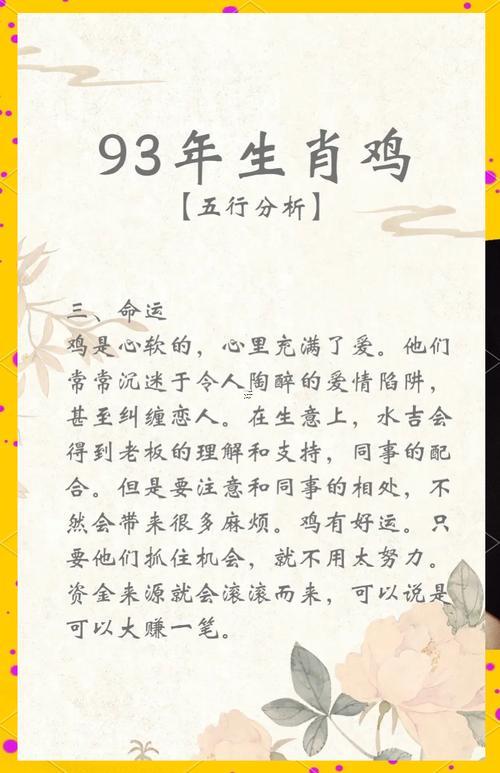 93年生肖鸡
【五行分析】
三、命运
鸡是心软的，心里充满了爱。他们
常常沉迷于令人陶醉的爱情陷阱，
甚至纠缠恋人。在生意上，水吉会
得到老板的理解和支持，同事的配
合。但是要注意和同事的相处，不
然会带来很多麻烦。鸡有好运。只
要他们抓住机会，就不用太努力。
资金来源就会滚滚而来，可以说是
可以大赚一笔。